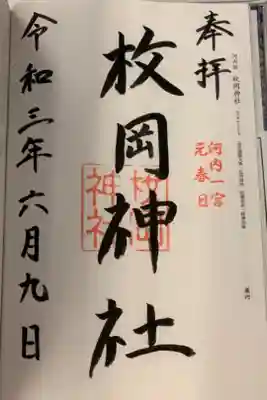 奉拝
河内一宮
元春日
枚岡神社
枚岡
神社
令和三年六月九日